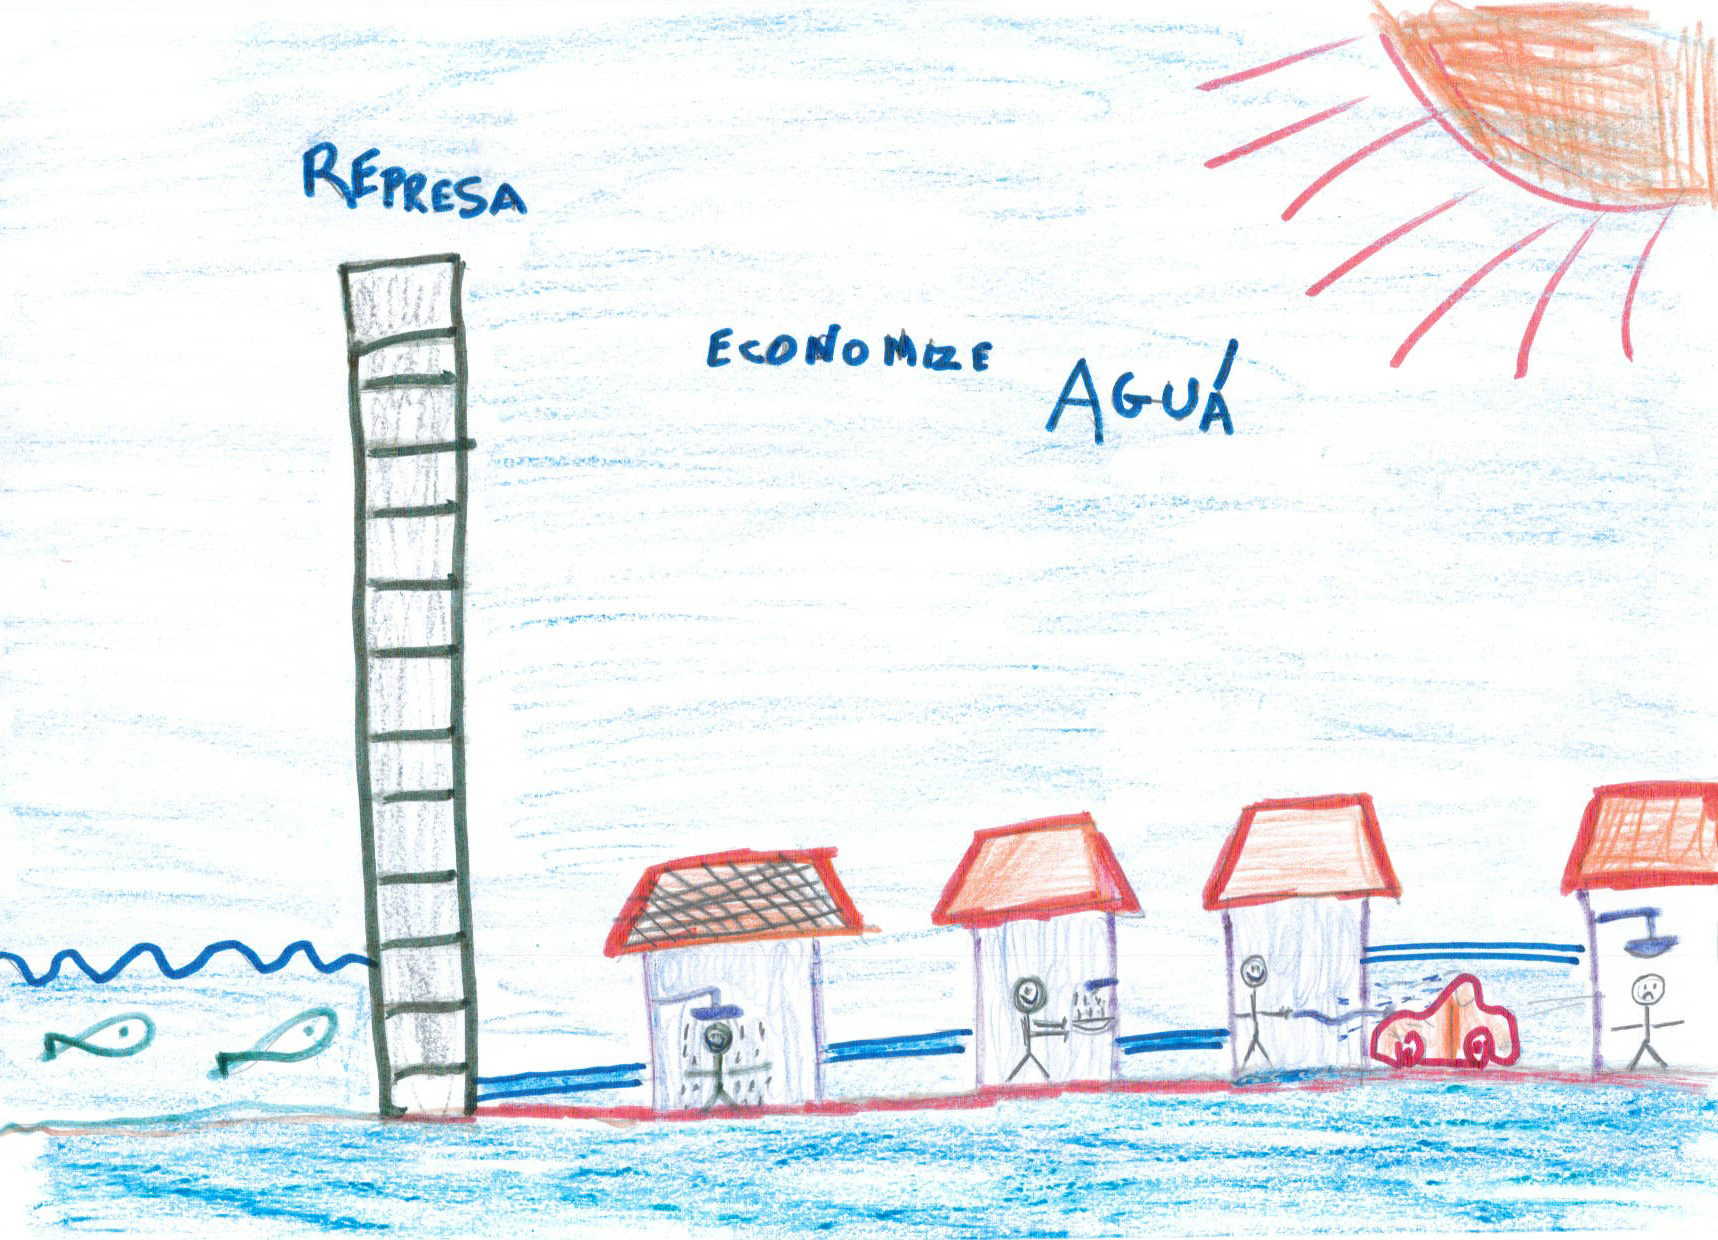 REPRESA
ECONOMIZE
AGUÁ